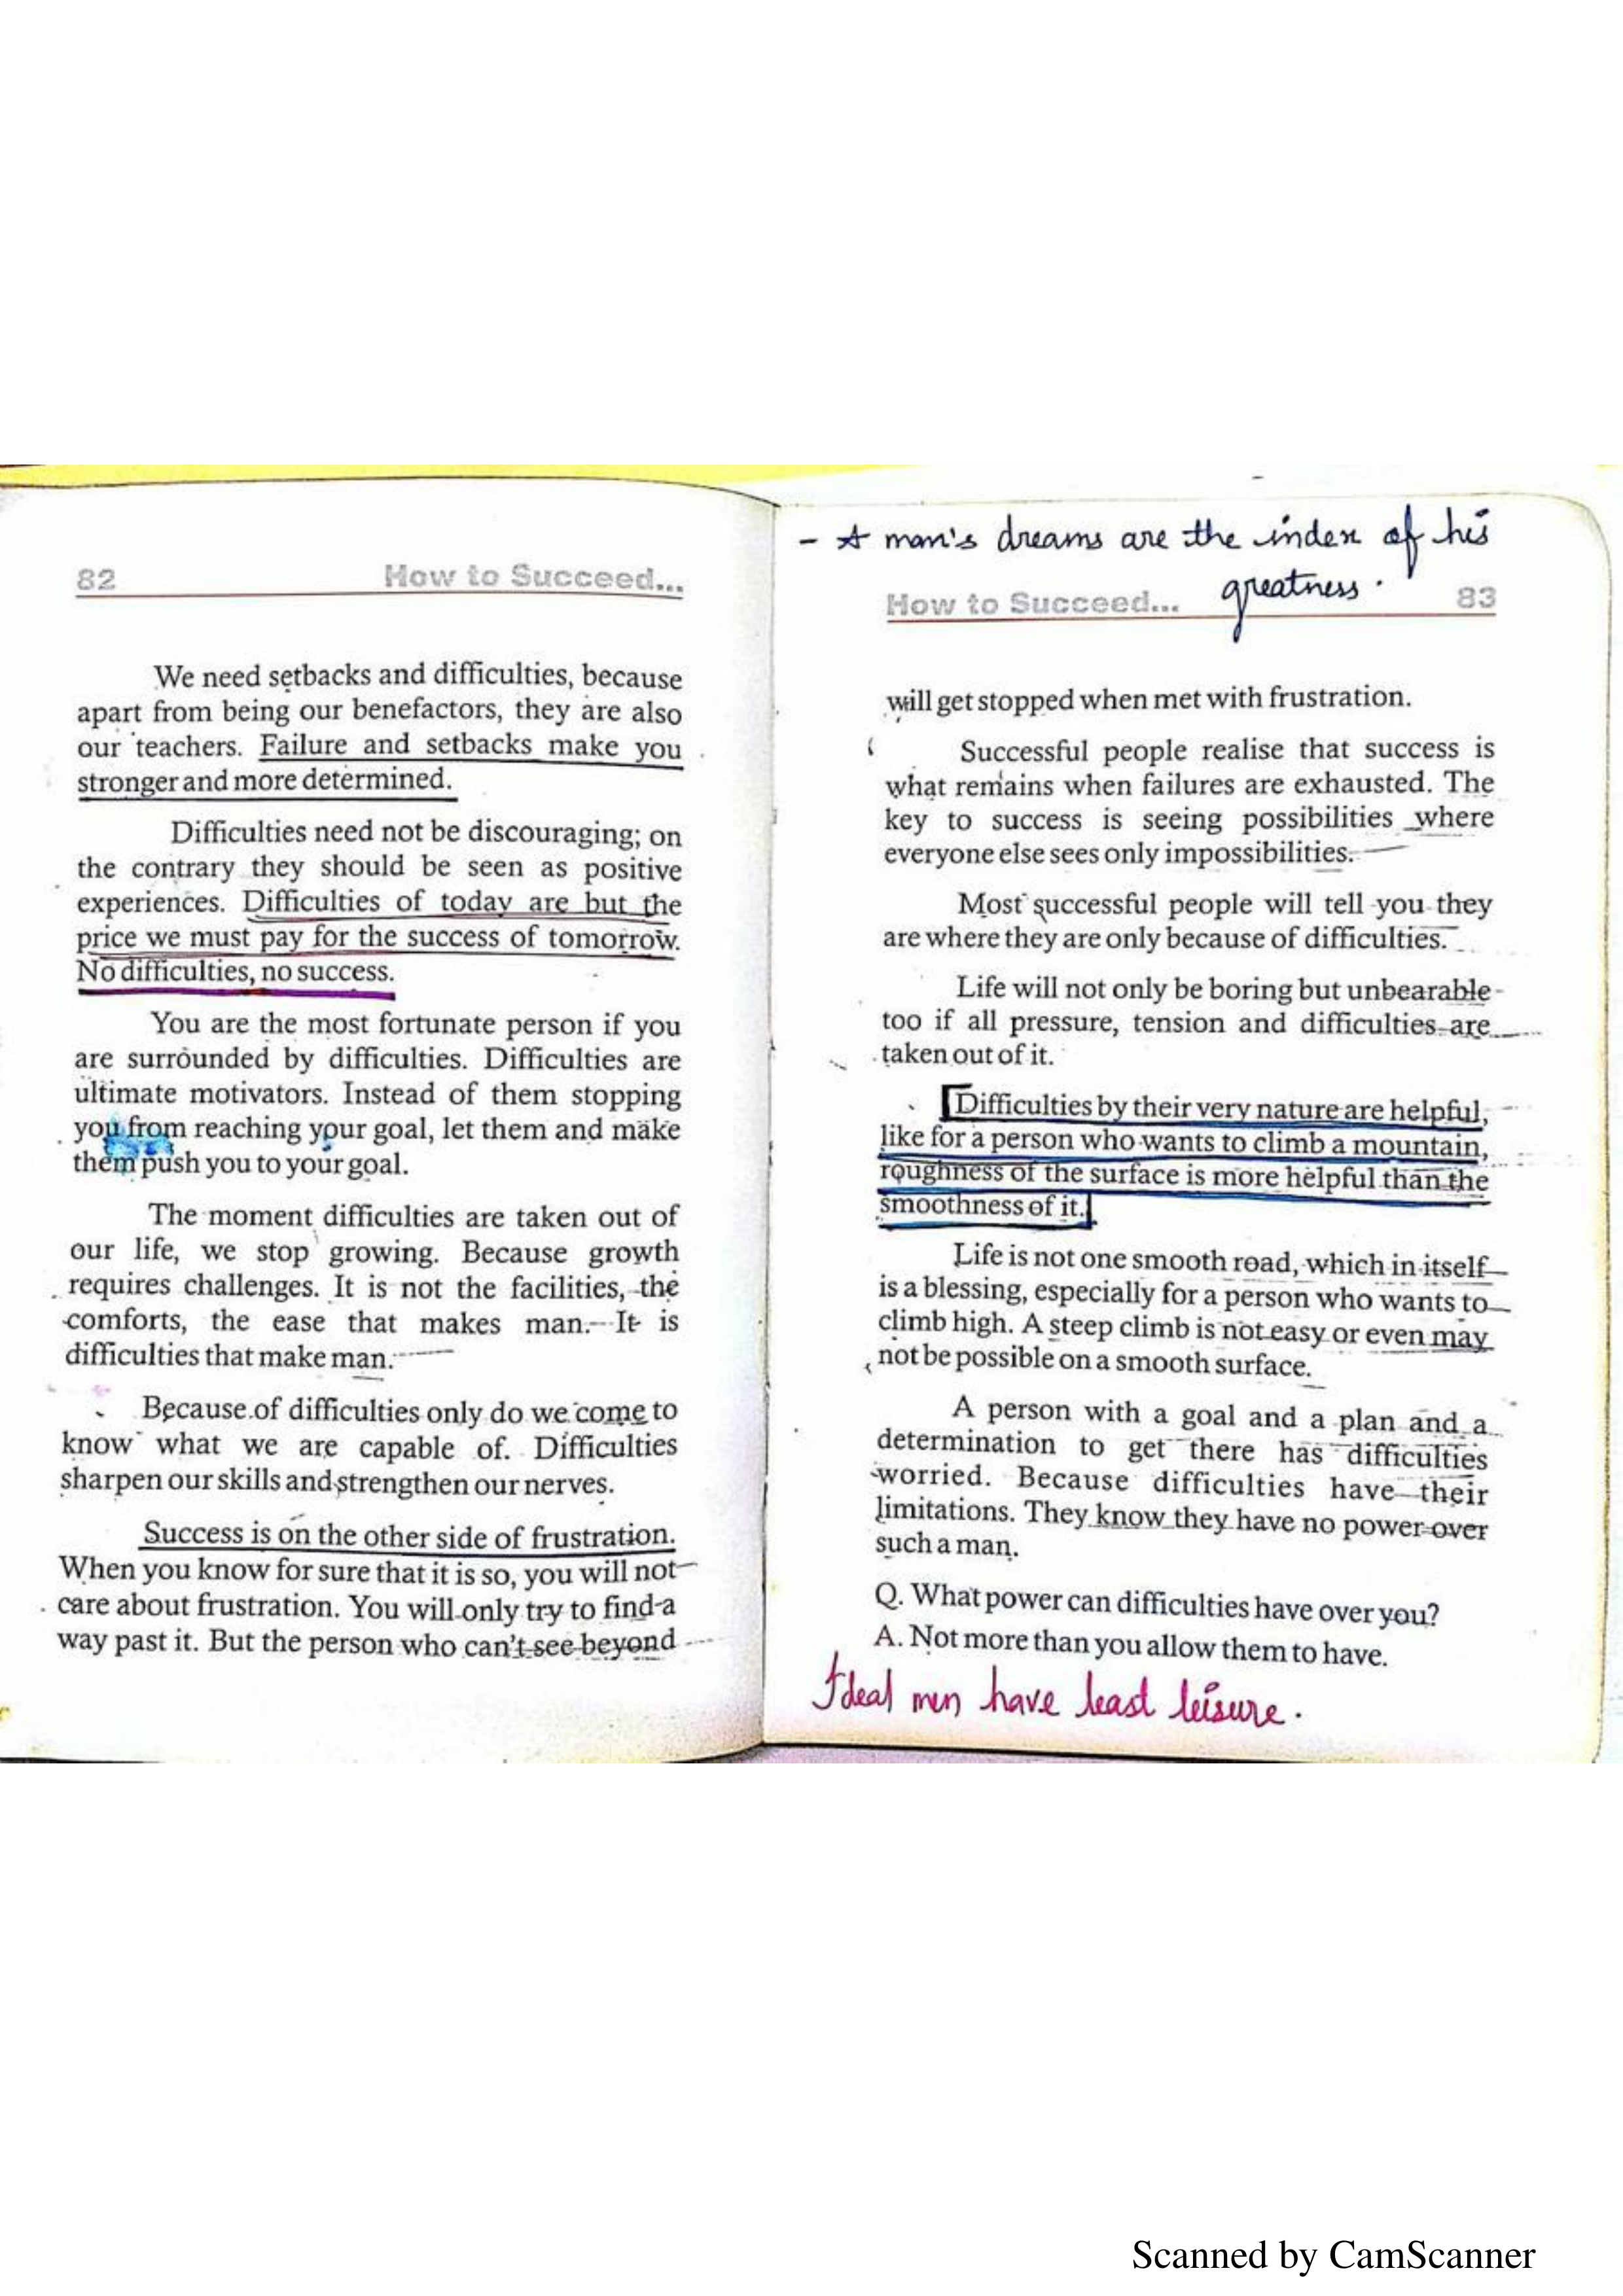 82 How to Succeed...
We need setbacks and difficulties, because
apart from being our benefactors, they are also
our teachers. Failure and setbacks make you
stronger and more determined.
Difficulties need not be discouraging; on
the contrary they should be seen as positive
experiences. Difficulties of today are but the
price we must pay for the success of tomorrow.
No difficulties, no success.
You are the most fortunate person if you
are surrounded by difficulties. Difficulties are
ultimate motivators. Instead of them stopping
you from reaching your goal, let them and make
them push you to your goal.
The moment difficulties are taken out of
our life, we stop growing. Because growth
requires challenges. It is not the facilities, the
comforts, the ease that makes man. It is
difficulties that make man.
Because of difficulties only do we come to
know what we are capable of. Difficulties
sharpen our skills and strengthen our nerves.
Success is on the other side of frustration.
When you know for sure that it is so, you will not
care about frustration. You will only try to find a
way past it. But the person who can't see beyond
- A man's dreams are the index of his
greatness.
How to Succeed... 83
will get stopped when met with frustration.
Successful people realise that success is
what remains when failures are exhausted. The
key to success is seeing possibilities where
everyone else sees only impossibilities.
Most successful people will tell you they
are where they are only because of difficulties.
Life will not only be boring but unbearable
too if all pressure, tension and difficulties are
taken out of it.
Difficulties by their very nature are helpful,
like for a person who wants to climb a mountain,
roughness of the surface is more helpful than the
smoothness of it.
Life is not one smooth road, which in itself
is a blessing, especially for a person who wants to
climb high. A steep climb is not easy or even may
not be possible on a smooth surface.
A person with a goal and a plan and a
determination to get there has difficulties
worried. Because difficulties have their
limitations. They know they have no power over
such a man.
Q. What power can difficulties have over you?
A. Not more than you allow them to have.
Ideal men have least leisure.
Scanned by CamScanner